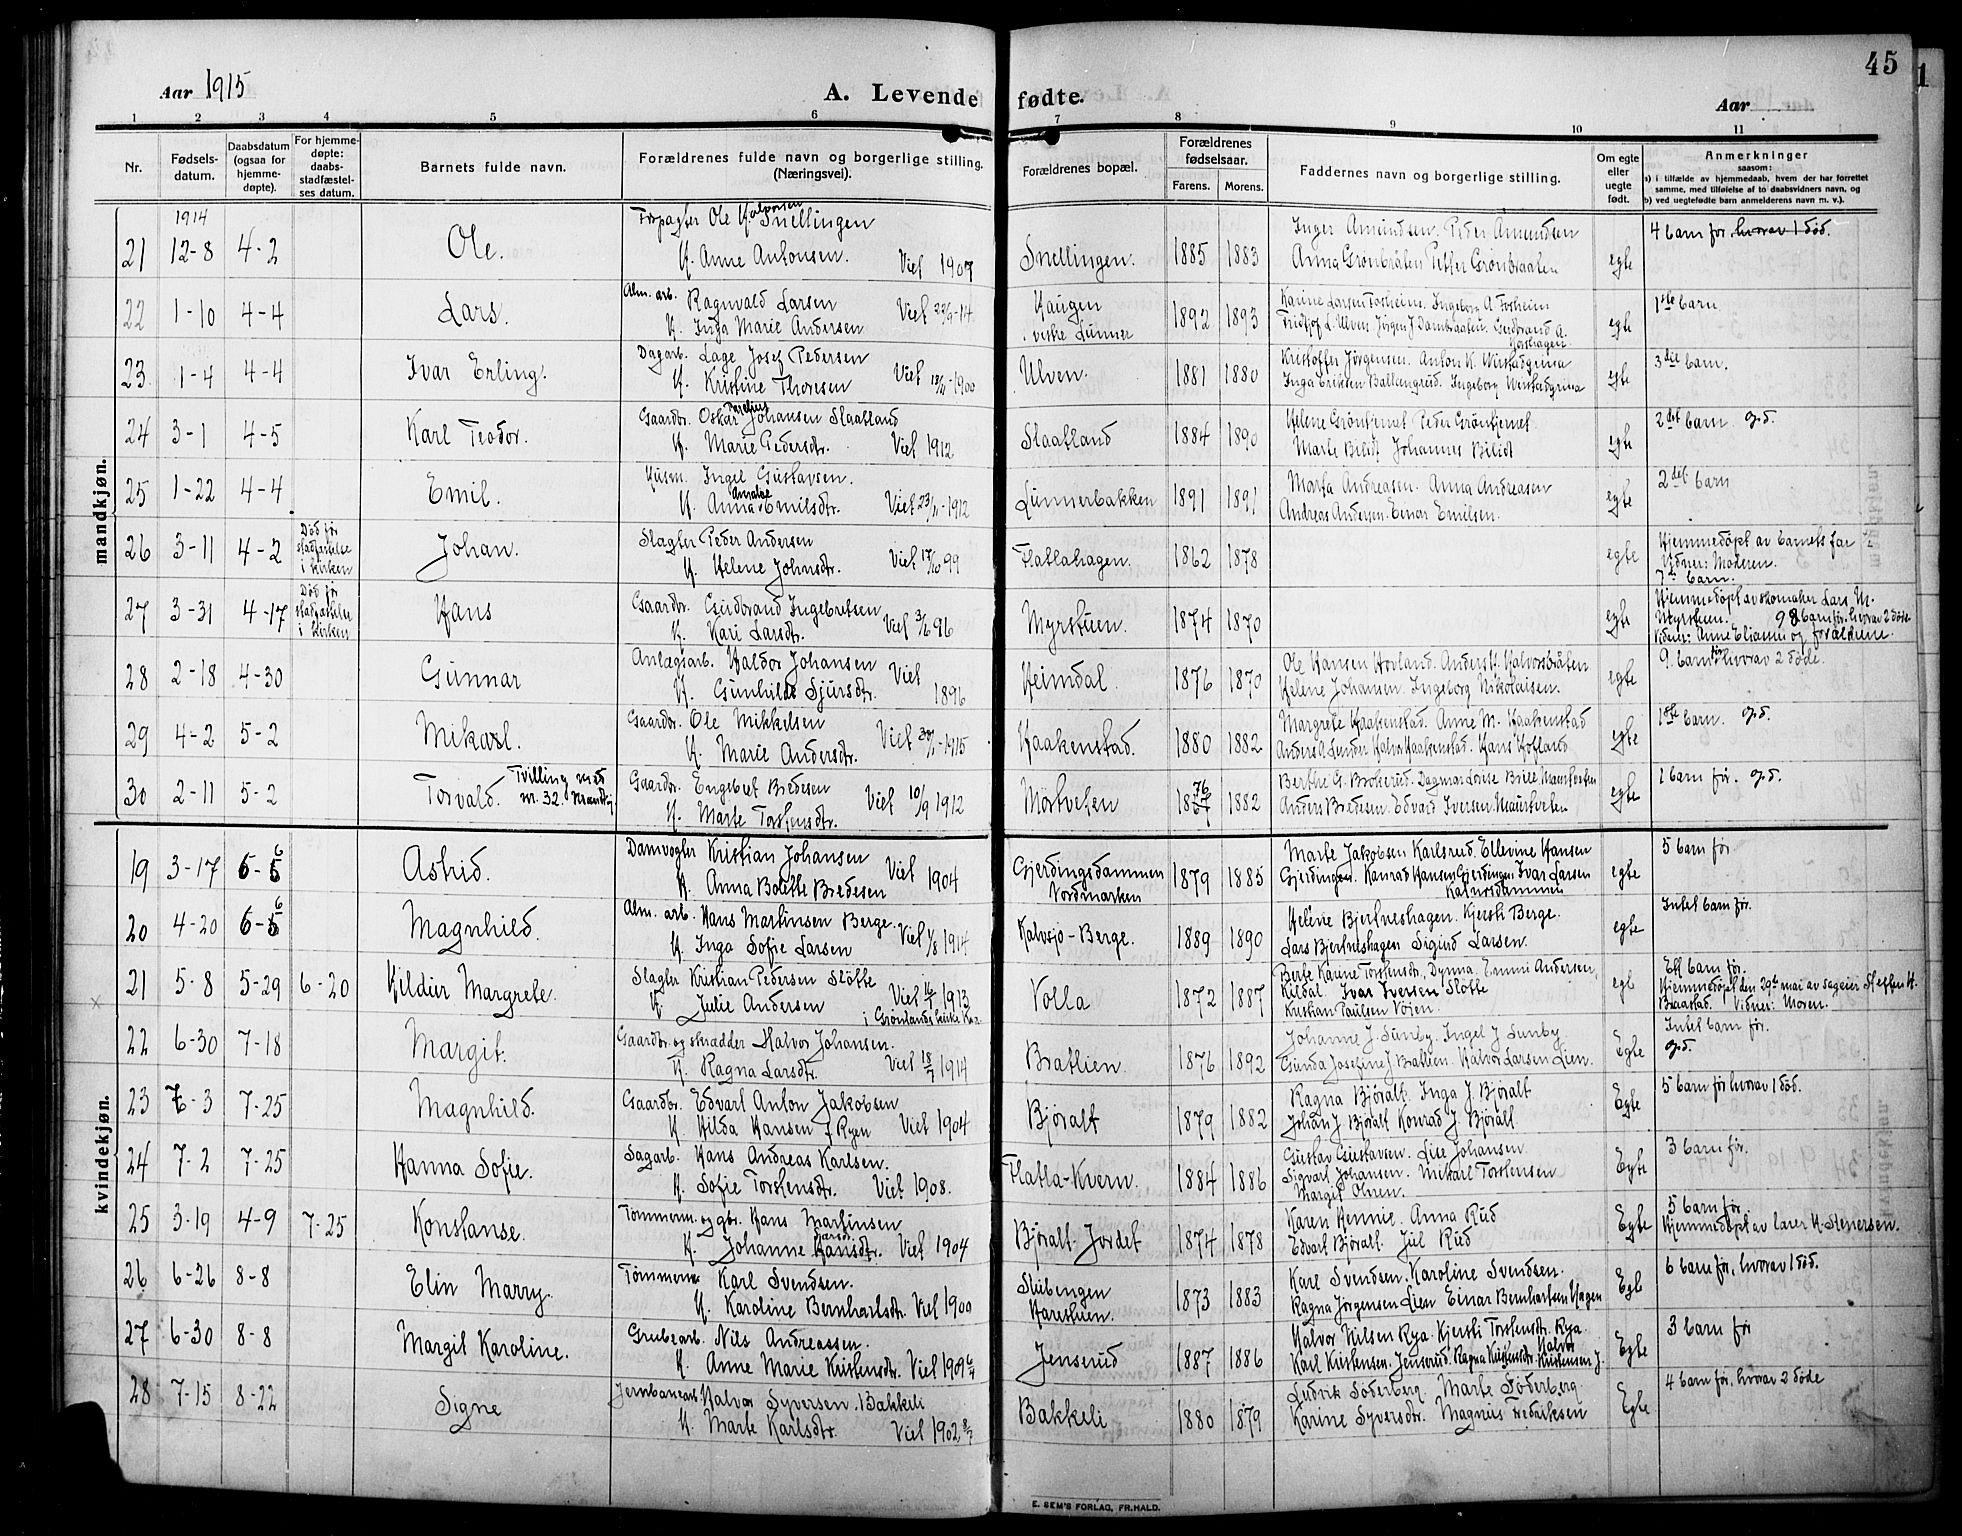 45
Aar 1915
A. Levende fødte.
Aar
1 2 3 4 5 6 7 8 9 10 11
Nr.
Fødsels-
datum.
Daabsdatum
(ogsaa for
hjemme-
døpte).
For hjemme-
døpte:
daabs-
stadfæstel-
ses datum.
Barnets fulde navn.
Forældrenes fulde navn og borgerlige stilling.
(Næringsvei).
Forældrenes bopæl.
Forældrenes
fødselsaar.
Farens. Morens.
Faddernes navn og borgerlige stilling.
Om egte
eller
uegte
født.
Anmerkninger
saasom:
a) i tilfælde av hjemmedaab, hvem der har forrettet
samme, med tilføielse af to daabsvidners navn, og
b) ved uegtefødte barn anmelderens navn m. v.).
mandkjøn.
1914
21 12-8 4-2 Ole. Forpagter Ole Halvorsen Snellingen
H. Anne Antonsen. Viet 1907
Snellingen. 1885 1883
Inger Amundsen. Peder Amundsen
Anna Grønbråten Petter Grønbraaten
egte 4 barn før, hvorav 1 død.
22 1-10 4-4 Lars. Alm. arb. Ragnvald Larsen
H. Inga Marie Andersen
Haugen
vestre Lunner 1892 1893
Karine Larsen Forsheim. Ingeborg A. Forsheim
Fridtjof L. Ulven. Jørgen J. Dambraaten. Gudbrand A.
egte 1ste barn
23 1-4 4-4 Ivar Erling. Dagarb. Lage Josef Pedersen
H. Kristine Thoresen Viet 18/11-1900
Ulven. 1881 1880
Kristoffer Jørgensen. Anton K.
Inga Eriksen Ballangrud. Ingeborg
egte 3die barn.
24 3-1 4-5 Karl Teodor. Gaardbr. Oskar Johansen Slaatland
H. Marie Pedersdtr. Viet 1912
Slaatland 1884 1890
Helene Grøntjernet Peder Grøntjernet
Marte Bilidt Johannes Bilidt
egte 2det barn o.p.d.
25 1-22 4-4 Emil. Husm. Ingel Gustavsen.
H. Anna Amalie Emilsdtr. Viet 23/11-1912
Lunnerbakken 1891 1891
Marta Andreasen. Anna Andreasen
Andreas Andersen. Einar Emilsen.
egte 2det barn
26 3-11 4-2 Død før
stadfæstelse
i kirken
Johan. Slagter Peder Andersen
H. Helene Johnsdtr. Viet 17/10 99
Flatlahagen. 1862 1878
egte Hjemmedøpt av barnets far
Vidner: Moderen.
7de barn.
27 3-31 4-17 Død før
stadfæstelse
i kirken
Hans Gaardbr. Gudbrand Ingebretsen
H. Kari Larsdtr. Viet 3/6 96
Myrstuen. 1874 1870
egte Hjemmedøpt av skomaker Lars M.
Myrstuen. 9 barn før, hvorav 2 døde
Vidner: Anne Eliassen og forældrene.
28 2-18 4-30 Gunnar Anlægsarb. Haldor Johansen
H. Gunhild Sjursdtr. Viet 1896
Heimdal. 1876 1870
Ole Hansen Hovland. Anders H. Halvorsbråten
Helene Johansen. Ingeborg Nikolaisen.
egte 9. barn før hvorav 2 døde.
29 4-2 5-2 Mikael. Gaardbr. Ole Mikkelsen
H. Marie Andersdtr.
Haakenstad. 1880 1882
Margrete Haakenstad. Anne M. Haakenstad
Anders Lunder Halvor Haakenstad. Hans Hofland
egte 1ste barn. o.p.d.
30 2-11 5-2 Torvald. Tvilling med
nr. 32. Mandkj.
Gaardbr. Engebret Bredesen
H. Marte Torstensdtr. Viet 10/9 1912
Mortveten 1876 1882
Berthe G. Brokerud. Dagmar Lovise
Anders Bredesen. Edvard Iversen
egte 1 barn før. o.p.d.
kvindekjøn.
19 3-17 6-6 Astrid. Damvogter Kristian Johansen
H. Anna Bolette Bredesen Viet 1904
Gjerdingsdammen
Nordmarken 1879 1885
Marte Jakobsen Karlsrud. Ellevine Hansen
Gjerdingen. Konrad Hansen Gjerdingen, Ivar Larsen
Katnosdammen
egte 5 barn før
20 4-20 6-6 Magnhild. Alm. arb. Hans Martinsen Berge.
H. Inga Sofie Larsen Viet 1/8 1914
Kalvsjø-Berge. 1889 1890
Helene Bjertneshagen. Kjersti Berge.
Lars Bjertneshagen Sigurd Larsen.
egte Intet barn før.
21 5-8 5-29 6-20 Hildur Margrete. Slagter Kristian Pedersen Sløtte
H. Julie Andersen Viet 1913
i Grønlands kirke Kra.
Volla 1872 1887
Berte Karine Torstensdtr, Dynna. Emmi Andersen,
Kildal. Ivar Iversen Sløtte
Kristian Paulsen Vøien.
egt Ett barn før.
Hjemmedøpt den 29de mai av sageier Steffen H.
Braastad. Vidner: Moren.
22 6-30 7-18 Margit. Gaardbr. og skrædder Halvor Johansen.
H. Ragna Larsdtr. Viet 18/7 1914
Brattlien. 1876 1892
Johanne J. Sunby. Ingel J Sunby
Gunda Josefine J Brattlien. Halvor Larsen Lien.
Egte Intet barn før.
o.p.d.
23 7-3 7-25 Magnhild. Gaardbr. Edvart Anton Jakobsen
H. Hilda Hansen f. Ryen Viet 1904
Bjøralt 1879 1882
Ragna Bjøralt. Inga J. Bjøralt
Johan J Bjøralt Konrad J Bjøralt.
Egte 5 barn før hvorav 1 død.
24 7-2 7-25 Hanna Sofie. Sagarb. Hans Andreas Karlsen.
H. Sofie Torstensdtr. Viet 1908.
Flatla-Kvern. 1884 1886
Gustav Gustavsen. Lise Johansen.
Sigvart Johansen. Mikael Torstensen
Margit Olsen.
Egte 3 barn før.
25 3-19 4-9 7-25 Konstanse. Tømmerm. og gbr. Hans Martinsen
H. Johanne Larsdtr. Viet 1904
Bjøralt-Jordet 1874 1878
Karen Hennie. Anna Rud
Edvart Bjøralt. Juel Rud
Egte 5 barn før.
Hjemmedøpt av lærer H. Stenersen.
26 6-26 8-8 Elin Marry. Tømmerm. Karl Svendsen.
H. Karoline Bernhartsdtr. Viet 1900
Stubengen
Harestuen. 1873 1883
Karl Svendsen. Karoline Svendsen.
Ragna Jørgensen Lien Einar Bernhartsen Hagen
Egte 6 barn før, hvorav 1 død.
27 6-30 8-8 Margit Karoline. Grubearb. Nils Andreassen.
H. Anne Marie Kristensdtr. Viet 1909
Jenserud 1887 1886
Halvor Nilsen Rya. Kjersti Torstensdtr. Rya.
Karl Kristensen. Jenserud. Ragna Kristensdtr. Halvor Kristensen J.
Egte 3 barn før
28 7-15 8-22 Signe Jernbanearb. Halvor Syversen. Bakkeli
H. Marte Karlsdtr. Viet 1902
Bakkeli 1880 1879
Ludvik Søderberg. Marte Søderberg.
Karine Syversdtr. Magnus Fredriksen
Egte 4 barn før, hvorav 2 døde
E. SEM'S FORLAG, FR.HALD.